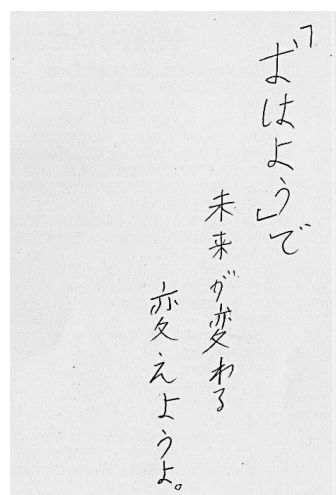 「おはよう」で
未来が変わる
変えようよ。